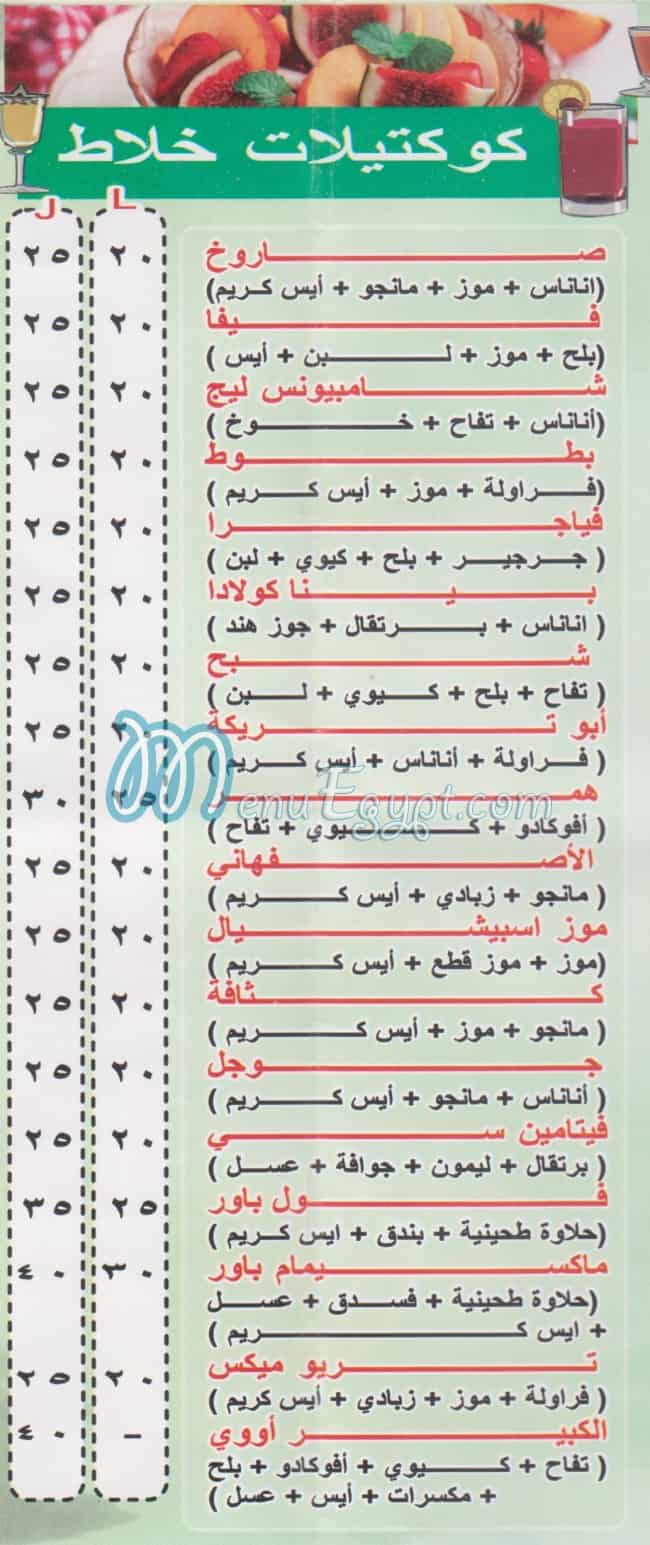 كوكتيلات خلاط
L
J
صاروخ ٢٠ ٢٥
(اناناس + موز + مانجو + أيس كريم)
فيفا ٢٠ ٢٥
(بلح + موز + لبن + أيس )
شامبيونس ليج ٢٠ ٢٥
(أناناس + تفاح + خوخ )
بطوط ٢٠ ٢٥
(فراولة + موز + أيس كريم )
فياجرا ٢٠ ٢٥
( جرجير + بلح + كيوي + لبن )
بينا كولادا ٢٠ ٢٥
( اناناس + برتقال + جوز هند )
شبح ٢٠ ٢٥
( تفاح + بلح + كيوي + لبن )
أبو تريكة ٢٠ ٢٥
( فراولة + أناناس + أيس كريم )
همر ٢٥ ٣٠
MenuEgypt.com
( أفوكادو + كيوي + تفاح )
الأصفهاني ٢٠ ٢٥
( مانجو + زبادي + أيس كريم )
موز اسبيشيال ٢٠ ٢٥
(موز + موز قطع + أيس كريم )
كثافة ٢٠ ٢٥
( مانجو + موز + أيس كريم )
جوجل ٢٠ ٢٥
( أناناس + مانجو + أيس كريم )
فيتامين سي ٢٠ ٢٥
( برتقال + ليمون + جوافة + عسل )
فول باور ٢٥ ٣٥
(حلاوة طحينية + بندق + ايس كريم )
ماكسيمام باور ٣٠ ٤٠
(حلاوة طحينية + فسدق + عسل
+ ايس كريم )
تريو ميكس ٢٠ ٢٥
( فراولة + موز + زبادي + أيس كريم )
الكبير أووي – ٤٠
( تفاح + كيوي + أفوكادو + بلح
+ مكسرات + أيس + عسل )